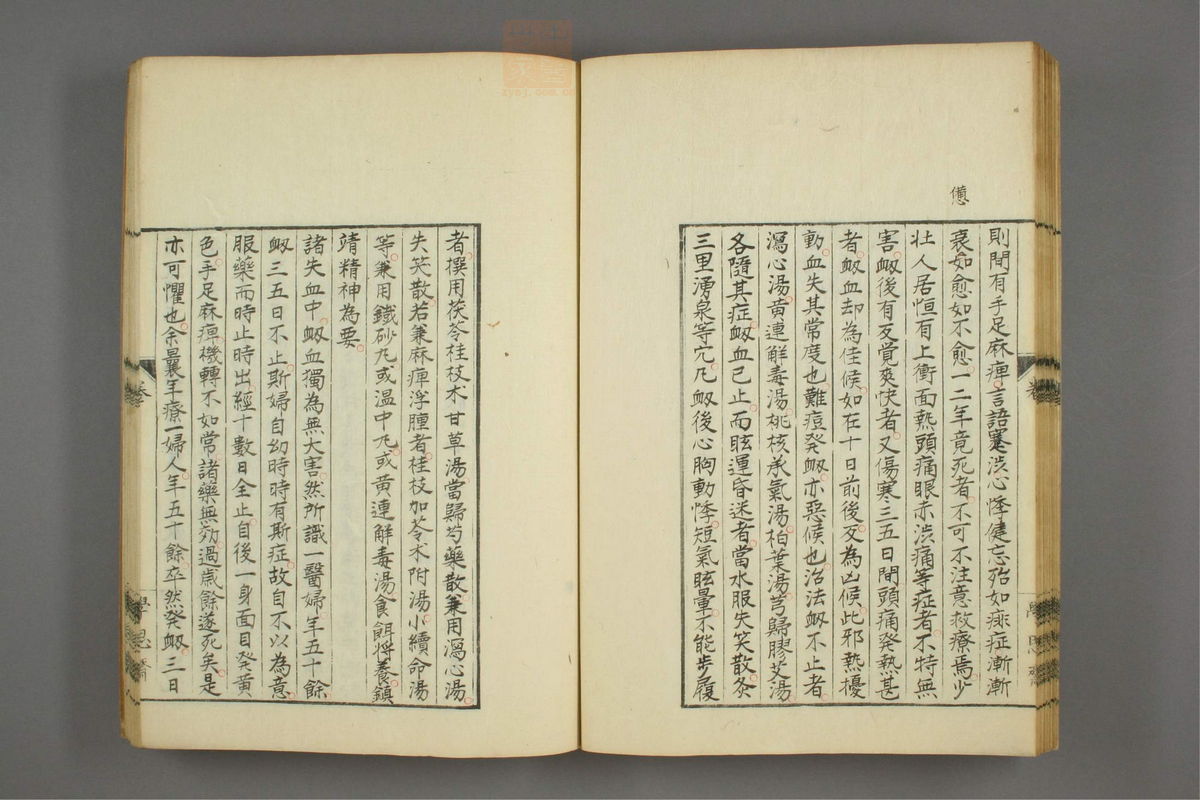 憊
則間有手足麻痺言語蹇澁心悸健忘殆如痱症漸漸
衰如愈如不愈一二年竟死者不可不注意救療焉少
壯人居恒有上衝面熱頭痛眼赤澁痛等症者不特無
害衂後有反覺爽快者又傷寒三五日間頭痛發熱甚
者衂血却為佳候如在十日前後反為凶候此邪熱擾
動血失其常度也難痘發衂亦惡候也治法衂不止者
瀉心湯黃連解毒湯桃核承氣湯柏葉湯芎歸膠艾湯
各隨其症衂血已止而眩運昏迷者當水服失笑散灸
三里湧泉等穴凡衂後心胸動悸短氣眩暈不能步履
者撰用茯苓桂枝朮甘草湯當歸芍藥散兼用瀉心湯
失笑散若兼麻痺浮腫者桂枝加苓朮附湯小續命湯
等兼用鐵砂丸或溫中丸或黃連解毒湯食餌將養鎮
靖精神為要
諸失血中衂血獨為無大害然所識一醫婦年五十餘
衂三五日不止斯婦自幼時時有斯症故自不以為意
服藥而時止時出經十數日全止自後一身面目發黃
色手足麻痺機轉不如常諸藥無効過歲餘遂死矣是
亦可懼也余曩年療一婦人年五十餘卒然發衂三日
卷
學思齋